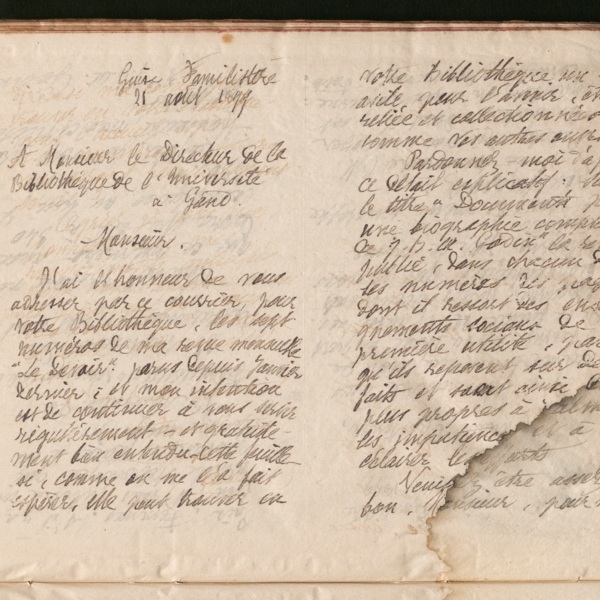 Guise Familistère
21 août 1899
A Monsieur le Directeur de la
Bibliothèque de l'Université
à Gand.
Monsieur,
J'ai l'honneur de vous
adresser par ce courrier, pour
votre Bibliothèque, les sept
numéros de ma revue mensuelle
"Le Devoir" parus depuis Janvier
dernier ; et mon intention
est de continuer à vous servir
régulièrement - et gratuite-
ment bien entendu - cette feuille
si, comme on me l'a fait
espérer, elle peut trouver en
votre Bibliothèque un
asile pour l'avenir, être
reliée et collectionnée
comme vos autres
Pardonnez-moi
ce détail explicatif :
le titre "Documents
une biographie
de J. Bte A. Godin" la
publie, dans chacun
les numéros des
dont il ressort des ensei-
gnements sociaux de
première utilité,
qu'ils reposent sur des
faits et sont ainsi
plus propres à
les impatiences et à
éclairer les
Veuillez être
bon, Monsieur, pour